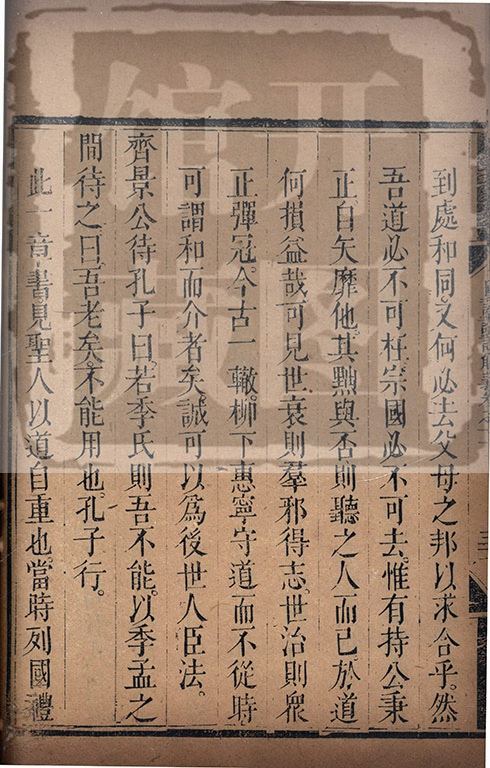 到處和同。又何必去父母之邦以求合乎。然
吾道必不可枉。宗國必不可去。惟有持公秉
正。自矢靡他。其黜與否。則聽之人而已。於道
何損益哉。可見世衰則羣邪得志。世治則衆
正彈冠。今古一轍。柳下惠寧守道而不從時
可謂和而介者矣。誠可以爲後世人臣法。
齊景公待孔子曰。若季氏則吾不能。以季孟之
間待之。曰。吾老矣。不能用也。孔子行。
此一章書。見聖人以道自重也。當時列國禮